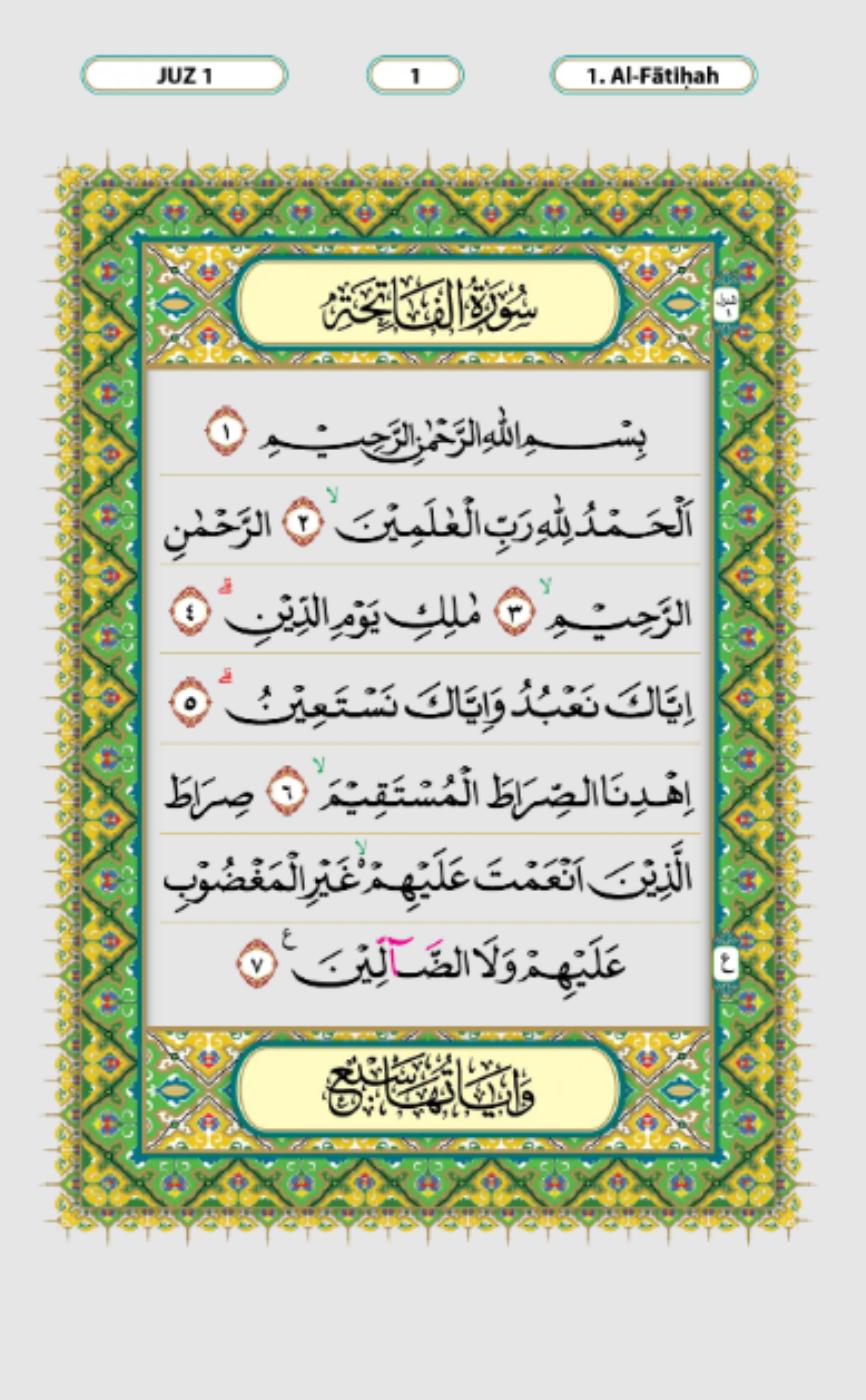 JUZ 1
1
1. Al-Fātiḥah
سُوْرَةُ الْفَاتِحَةِ
المنزل ١
بِسْمِ اللّٰهِ الرَّحْمٰنِ الرَّحِيْمِ ١
اَلْحَمْدُ لِلّٰهِ رَبِّ الْعٰلَمِيْنَۙ ٢ الرَّحْمٰنِ
الرَّحِيْمِۙ ٣ مٰلِكِ يَوْمِ الدِّيْنِۗ ٤
اِيَّاكَ نَعْبُدُ وَاِيَّاكَ نَسْتَعِيْنُۗ ٥
اِهْدِنَا الصِّرَاطَ الْمُسْتَقِيْمَۙ ٦ صِرَاطَ
الَّذِيْنَ اَنْعَمْتَ عَلَيْهِمْ ەۙ غَيْرِ الْمَغْضُوْبِ
عَلَيْهِمْ وَلَا الضَّاۤلِّيْنَ ࣖ ٧
ع
وَاٰيَاتُهَا سَبْعٌ